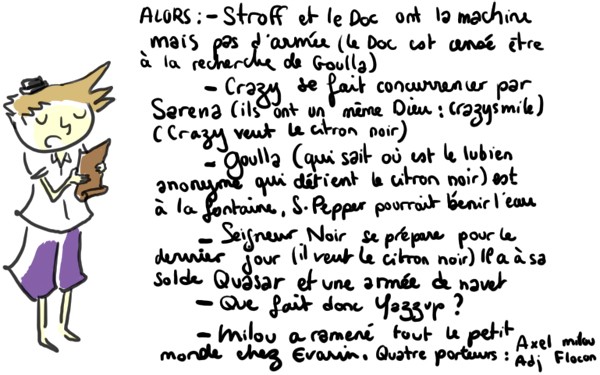 ALORS : - Stroff et le Doc ont la machine
mais pas d'armée (le Doc est censé être
à la recherche de Goulla)
- Crazy se fait concurrencer par
Sarena (ils ont un même Dieu : crazysmile)
(Crazy veut le citron noir)
- Goulla (qui sait où est le lubien
anonyme qui détient le citron noir) est
à la fontaine, S. Pepper pourrait bénir l'eau
- Seigneur Noir se prépare pour le
dernier jour (il veut le citron noir) Il a à sa
solde Quasar et une armée de navet
- Que fait donc Yazzup ?
- Milou a ramené tout le petit
monde chez Evarin. Quatre porteurs : Axel milou
Adj Flocon